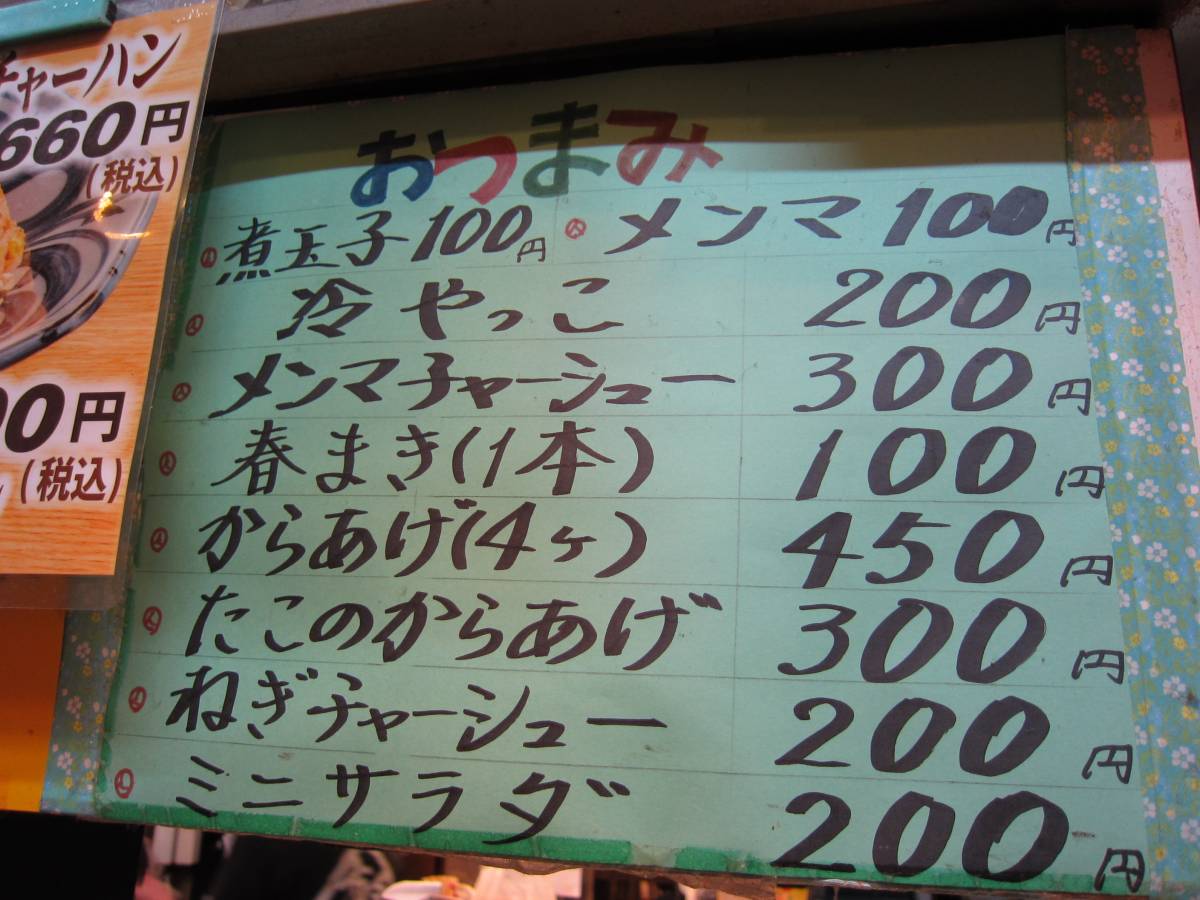 チャーハン
660円
(税込)
00円
(税込)
おつまみ
煮玉子100円 メンマ100円
冷やっこ 200円
メンマチャーシュー 300円
春まき(1本) 100円
からあげ(4ヶ) 450円
たこのからあげ 300円
ねぎチャーシュー 200円
ミニサラダ 200円